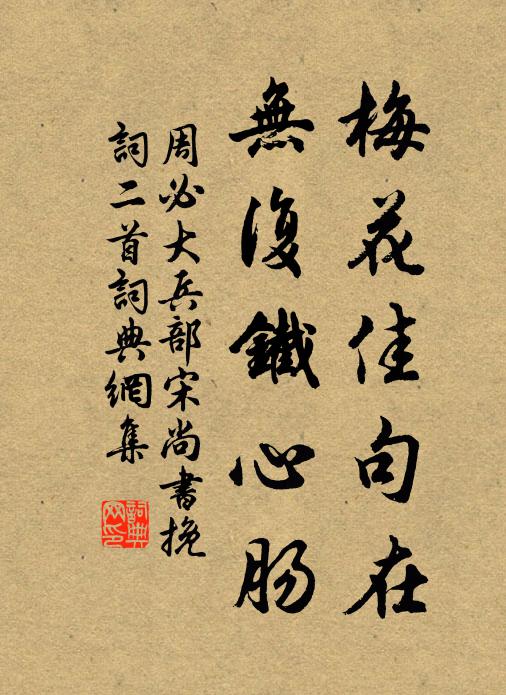 梅花佳句在
無復鐵心腸
周必大兵部宋尚書挽
詞二首詞典網集
詞典
網印